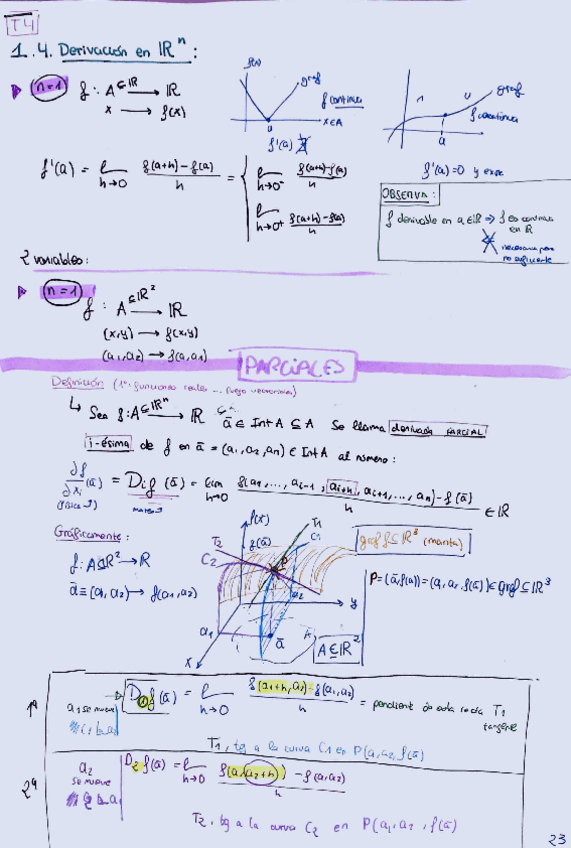 T4
1.4. Derivación en ℝⁿ:
n=1 f: A⊆ℝ → ℝ
x → f(x)
f(x)
graf
f continua
x∈A
a
f'(a) ∄
graf
f continua
a
f'(a)=0 y existe
f'(a) = lím h→0 f(a+h)-f(a) / h = { lím h→0⁻ f(a+h)-f(a) / h
lím h→0⁺ f(a+h)-f(a) / h
OBSERVA:
f derivable en a∈ℝ ⇒ f es continua
en ℝ
necesaria pero
no suficiente
2 variables:
n=1 f: A⊆ℝ² → ℝ
(x,y) → f(x,y)
(a₁,a₂) → f(a,a₁)
PARCIALES
Definición (1º funciones reales ... luego vectoriales)
↳ Sea f: A⊆ℝⁿ → ℝ ā ∈ Int A ⊆ A Se llama derivada PARCIAL
i-ésima de f en ā = (a₁,a₂,aₙ) ∈ Int A al número:
∂f/∂xᵢ (ā) = Dᵢf(ā) = lím h→0 f(a₁,...,aᵢ₋₁,aᵢ+h,aᵢ₊₁,...,aₙ)-f(ā) / h ∈ ℝ
Gráficamente:
f: A⊆ℝ² → ℝ
ā ≡ (a₁,a₂) → f(a₁,a₂)
f(x)
f(ā)
T₁
T₂
C₁
C₂
P
a₂
a₁
ā
y
x
A⊆ℝ²
graf f⊆ℝ³ (manta)
P=(ā,f(ā))=(a₁,a₂,f(ā))∈graf⊆ℝ³
1ª
a₁ se mueve
D₁f(ā) = lím h→0 f(a₁+h,a₂)-f(a₁,a₂) / h = pendiente de esta recta T₁
tangente
T₁, tg a la curva C₁ en P(a₁,a₂,f(ā)
2ª
a₂
se mueve
D₂f(ā) = lím h→0 f(a₁,a₂+h) - f(a₁,a₂) / h
T₂, tg a la curva C₂ en P(a₁,a₂,f(ā)
23